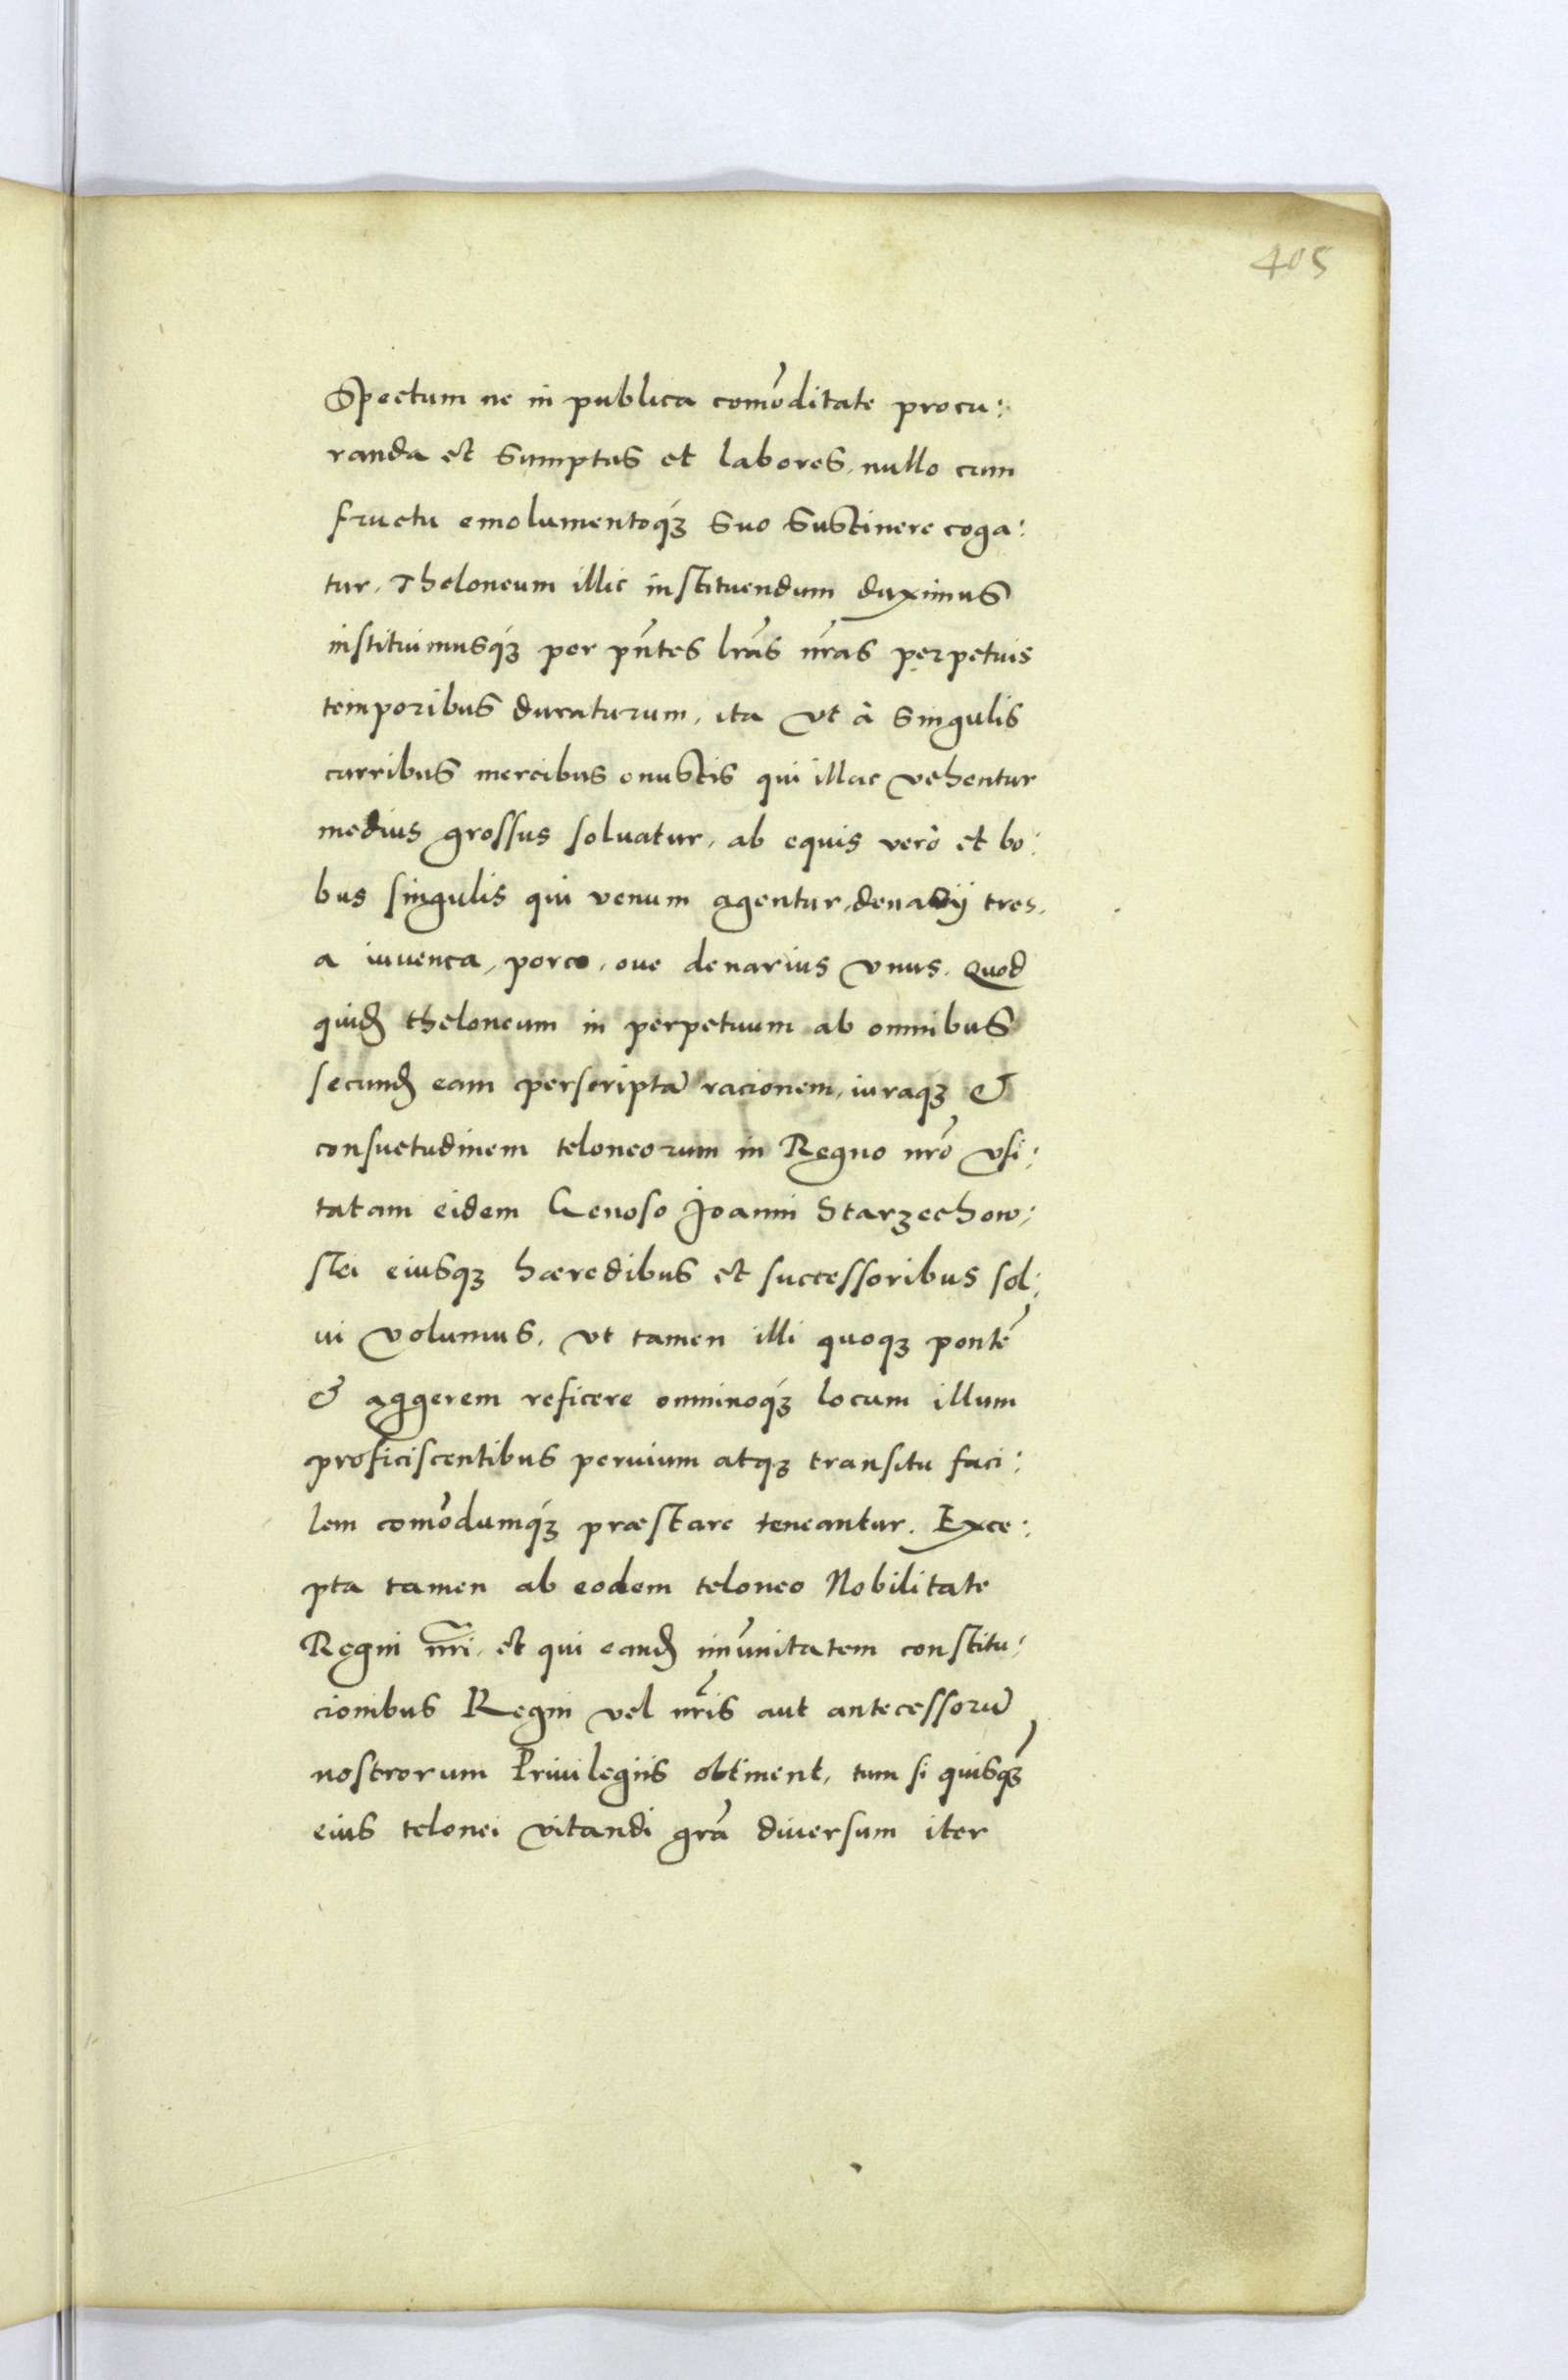 405
Spectum ne in publica com̄oditate procu:
randa et sumptus et labores, nullo cum
fructu emolumentoq́ꝫ suo sustinere coga:
tur. Theloneum illic instituendum duximus
instituimusq́ꝫ per pñtes lr̃as nr̃as perpetuis
temporibus duraturum, ita vt à singulis
curribus mercibus onustis qui illac vehentur
medius grossus soluatur, ab equis verò et bo:
bus singulis qui venum agentur, denarij tres,
a iuuenca, porco, oue denarius vnus. Quod
quid̃ theloneum in perpetuum ab omnibus
secund̃ eam perscriptã racionem, iuraqꝫ &
consuetudinem teloneorum in Regno nr̃o vsi:
tatam eidem Genoso Joanni Starzechow:
skei eiusqꝫ hæredibus et successoribus sol:
ui volumus, vt tamen illi quoqꝫ pontẽ
& aggerem reficere omninoq́ꝫ locum illum
proficiscentibus peruium atqꝫ transitu faci:
lem com̄odumq́ꝫ præstare teneantur. Exce:
pta tamen ab eodem teloneo Nobilitate
Regni nr̃i, et qui eand̃ im̄unitatem constitu:
cionibus Regni vel nr̃is aut antecessorũ
nostrorum Priuilegiis obtinent, tum si quisqꝫ
eius telonei vitandi gr̃a diuersum iter